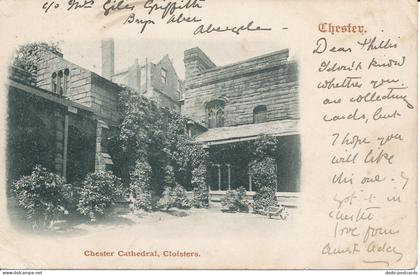 c/o Mrs Giles Griffith
Bryn Aber
Abergele
Chester.
Dear Phillis
I don't know
whether you
are collecting
cards, but
I hope you
will like
this one. I
got it in
Chester
love from
Aunt Addy
Chester Cathedral, Cloisters.
delcampe.net